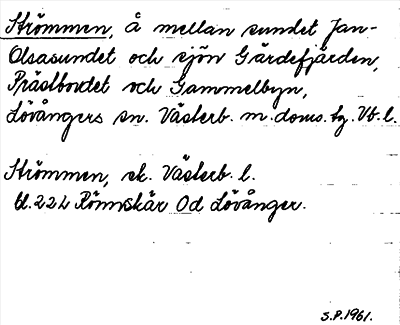 Strömmen, å mellan sundet Jan-
Olsasundet och sjön Gärdefjärden,
Prästbordet och Gammelbyn,
Lövångers sn. Västerb. m. doms. tg. Vb. l.
Strömmen, ek. Västerb. l.
bl. 222 Rönnskär Od Lövånger.
S.P. 1961.